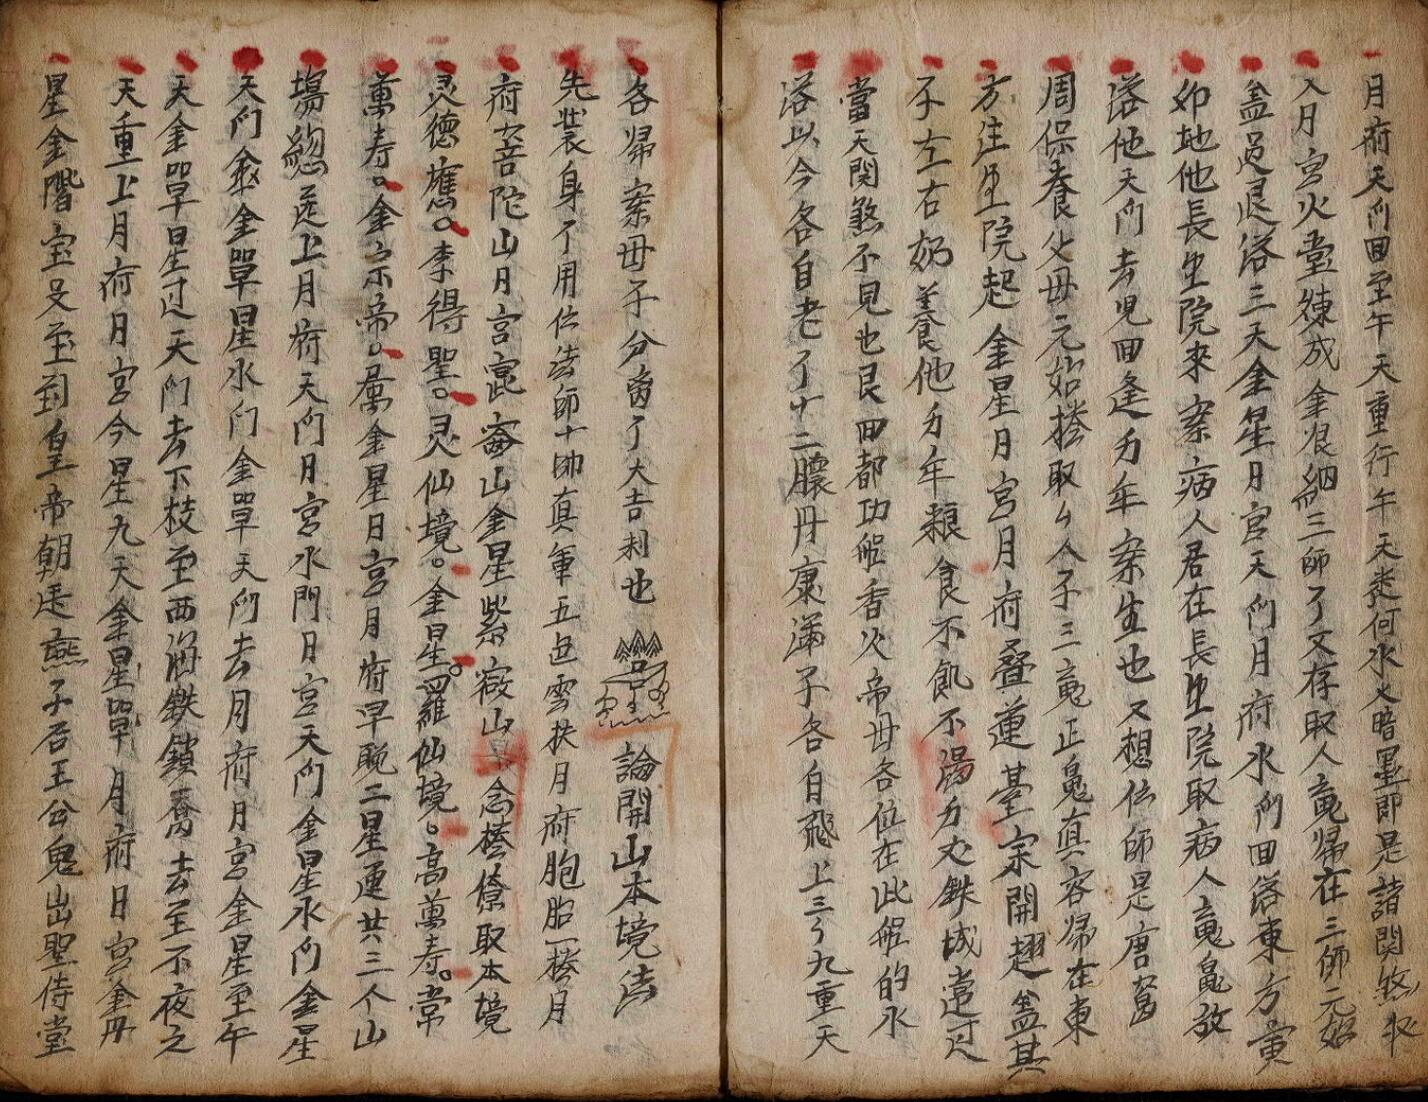 月府天門田至午天重行午天娄何水火暗星即是諸関煞収
入月宮火堂煉成金浪網三師了又存取人竜歸在三師元始
盖足退洛三天金星月宮天门月府水门田洛東方寅
卯地他長生院來案病人君在長生院取病人竜鬼放
洛他天门去児田逢万年案生也又想伝師是唐
周保養父母元始搽取厶人子三竜正鬼真容帰在東
方注生院起金星月宮月府叠蓮基宗開盖其
子左右奶養食他万年粮食不飢不渴万丈鉄城當过
當天関煞不見也艮田都功船香火帝毋各位在此船的水
洛以今各自老了十二膿丹康满子各自飛上三了九重天
各帰案毋子分离了大吉利也 論開山本境法
先裝身了用伝法師十師真軍五色雲扶月府胞胎一搽月
府菩陀山月宮崑崙山金星紫微山念搽像取本境
灵德應。李得聖。灵仙境。金星。羅仙境。高萬寿。常
萬寿。金尔帝。萬金星日宮月府早晚二星運共三个山
場上月府天门月宮水門日宮天门金星水门金星
天门金單星水门金單天门去月府月宮金星至午
天金單星过天门去下枝至西海鉄鎖喬去至不夜之
天重上月府月宮今星九天金星單月府日宮金丹
星金階宝又至到皇帝朝是燕子石王公鬼出聖侍堂